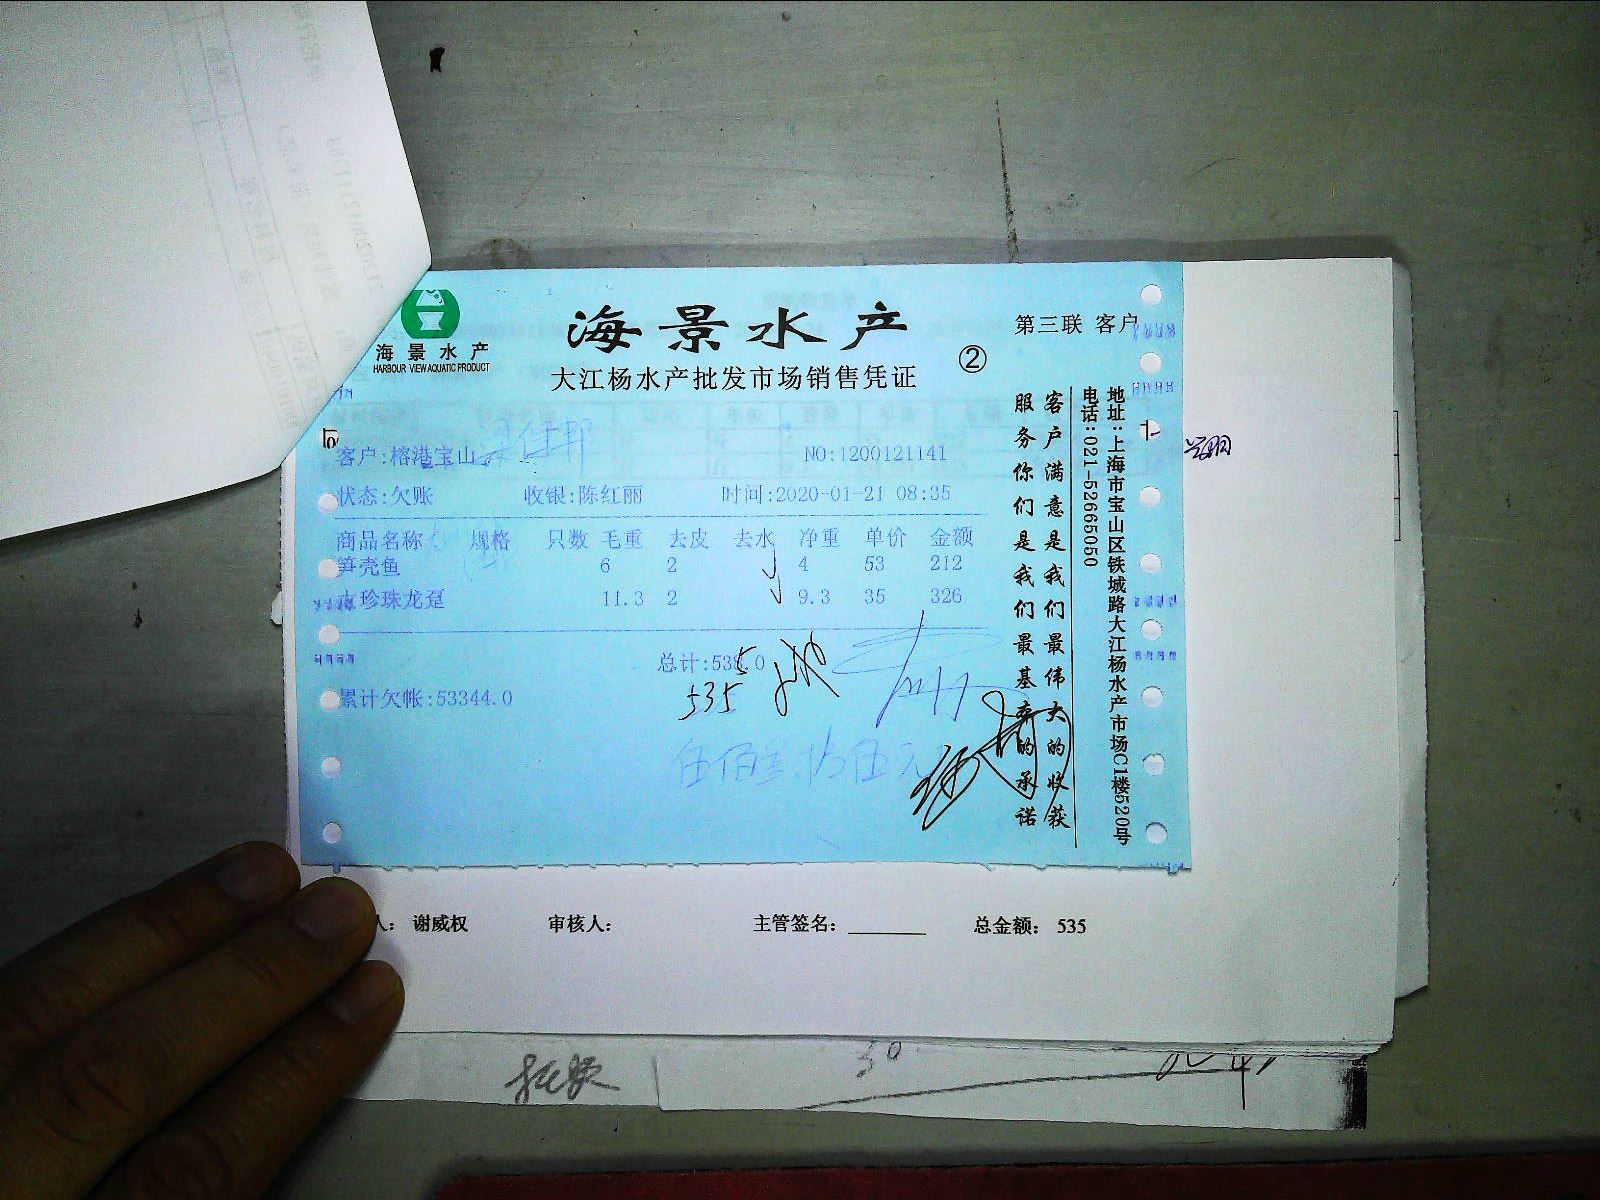 海景水产
HARBOUR VIEW AQUATIC PRODUCT
海景水产
大江杨水产批发市场销售凭证
②
第三联 客户
客户:榕港宝山
NO:1200121141
状态:欠账 收银:陈红丽 时间:2020-01-21 08:35
商品名称 规格 只数 毛重 去皮 去水 净重 单价 金额
笋壳鱼 6 2 4 53 212
珍珠龙趸 11.3 2 9.3 35 326
总计:538.0
5
535
累计欠帐:53344.0
伍佰叁拾伍元
客户满意是我们最伟大的收获
服务你们是我们最基本的承诺
地址:上海市宝山区铁城路大江杨水产市场C1楼520号
电话:021-52665050
人: 谢威权 审核人: 主管签名: 总金额: 535
30